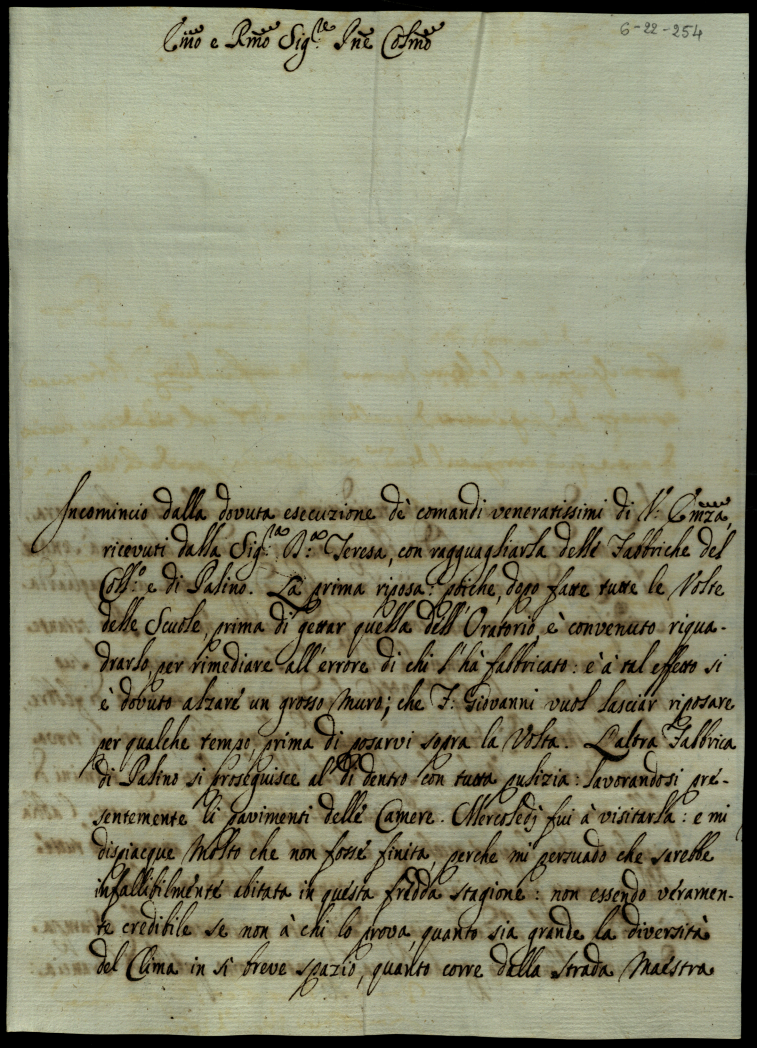 6-22-254
Emo e Rmo Sig.re Pne Colmo
Incomincio dalla dovuta esecuzione dè comandi veneratissimi di V: Emza,
ricevuti dalla Sig.ra B.a Teresa, con ragguagliarla delle Fabbriche del
Coll.o e di Palino. La prima riposa: poiche, dopo fatte tutte le Volte
delle Scuole, prima di gettar quella dell'Oratorio, è convenuto riqua-
drarlo, per rimediare all'errore di chi l'hà fabbricato: e à tal effetto si
è dovuto alzare un grosso muro; che F: Giovanni vuol lasciar riposare
per qualche tempo, prima di posarvi sopra la Volta. L'altra Fabbrica
di Palino si proseguisce al di dentro con tutta pulizia: lavorandosi pre-
sentemente li pavimenti delle Camere. Mercoledj fui à visitarla: e mi
dispiacque molto che non fosse finita, perche mi persuado che sarebbe
infallibilmente abitata in questa fredda stagione: non essendo veramen-
te credibile se non à chi lo prova, quanto sia grande la diversità
del Clima in sì breve spazio, quanto corre dalla Strada Maestra